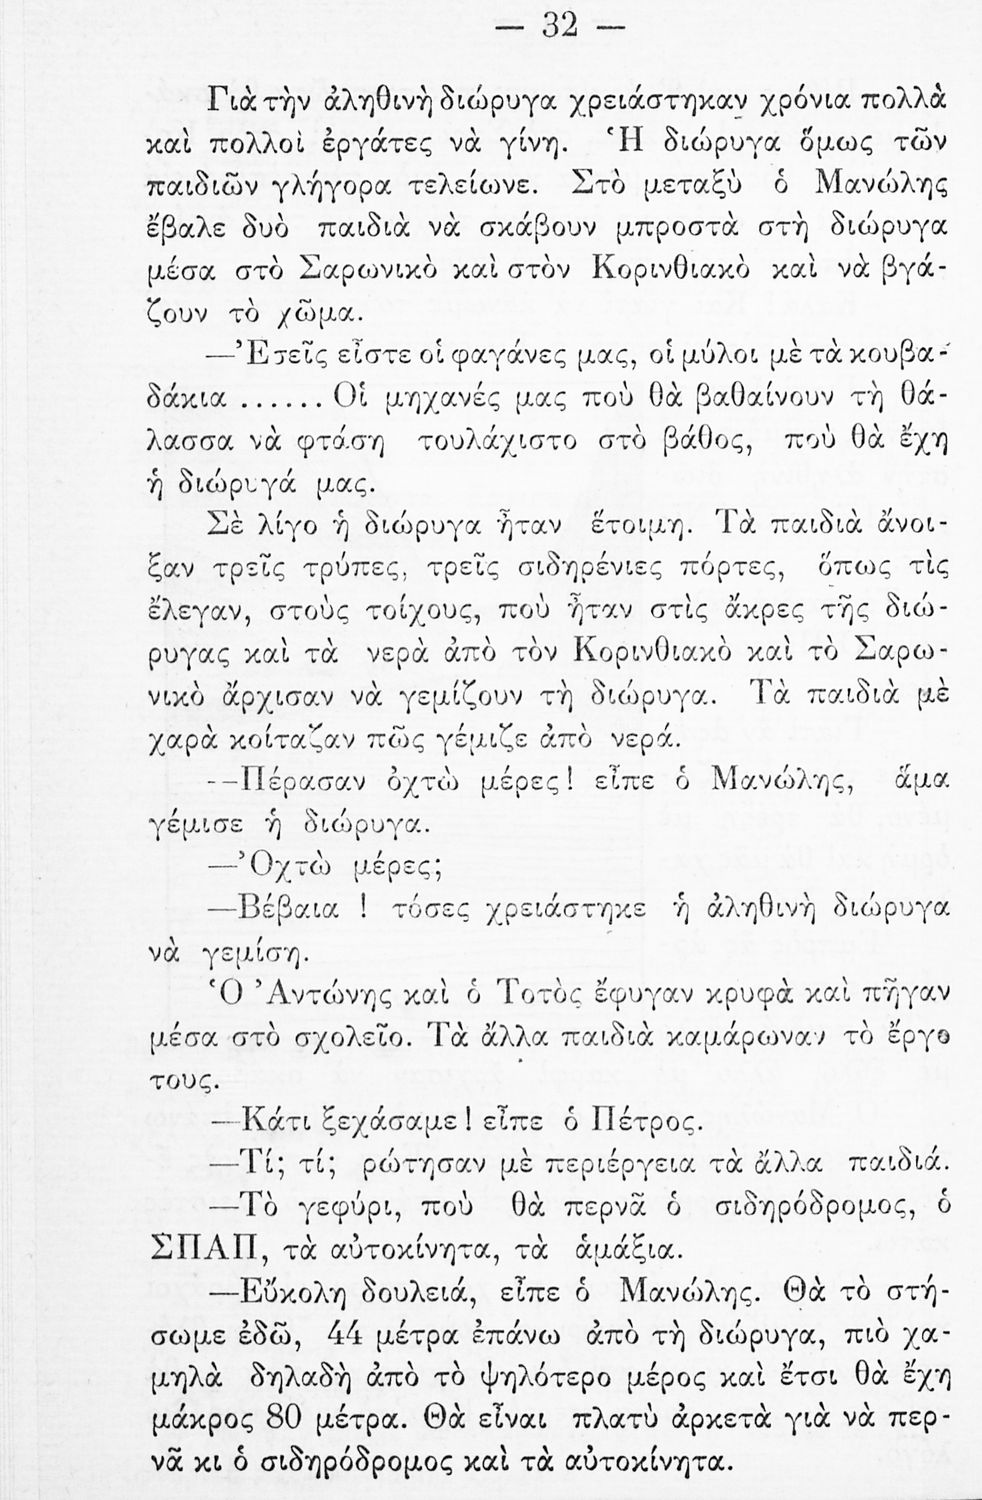 — 32 —
Γιὰ τὴν ἀληθινὴ διώρυγα χρειάστηκαν χρόνια πολλὰ
καὶ πολλοὶ ἐργάτες νὰ γίνη. Ἡ διώρυγα ὅμως τῶν
παιδιῶν γλήγορα τελείωνε. Στὸ μεταξὺ ὁ Μανώλης
ἔβαλε δυὸ παιδιὰ νὰ σκάβουν μπροστὰ στὴ διώρυγα
μέσα στὸ Σαρωνικὸ καὶ στὸν Κορινθιακὸ καὶ νὰ βγά-
ζουν τὸ χῶμα.
—Ἐσεῖς εἶστε οἱ φαγάνες μας, οἱ μύλοι μὲ τὰ κουβα-
δάκια ...... Οἱ μηχανές μας ποὺ θὰ βαθαίνουν τὴ θά-
λασσα νὰ φτάση τουλάχιστο στὸ βάθος, ποὺ θὰ ἔχη
ἡ διώρυγά μας.
Σὲ λίγο ἡ διώρυγα ἦταν ἕτοιμη. Τὰ παιδιὰ ἄνοι-
ξαν τρεῖς τρύπες, τρεῖς σιδηρένιες πόρτες, ὅπως τὶς
ἔλεγαν, στοὺς τοίχους, ποὺ ἦταν στὶς ἄκρες τῆς διώ-
ρυγας καὶ τὰ νερὰ ἀπὸ τὸν Κορινθιακὸ καὶ τὸ Σαρω-
νικὸ ἄρχισαν νὰ γεμίζουν τὴ διώρυγα. Τὰ παιδιὰ μὲ
χαρὰ κοίταζαν πῶς γέμιζε ἀπὸ νερά.
—Πέρασαν ὀχτὼ μέρες! εἶπε ὁ Μανώλης, ἅμα
γέμισε ἡ διώρυγα.
—Ὀχτὼ μέρες;
—Βέβαια ! τόσες χρειάστηκε ἡ ἀληθινὴ διώρυγα
νὰ γεμίση.
Ὁ Ἀντώνης καὶ ὁ Τοτὸς ἔφυγαν κρυφὰ καὶ πῆγαν
μέσα στὸ σχολεῖο. Τὰ ἄλλα παιδιὰ καμάρωναν τὸ ἔργο
τους.
—Κάτι ξεχάσαμε! εἶπε ὁ Πέτρος.
—Τί; τί; ρώτησαν μὲ περιέργεια τὰ ἄλλα παιδιά.
—Τὸ γεφύρι, ποὺ θὰ περνᾶ ὁ σιδηρόδρομος, ὁ
ΣΠΑΠ, τὰ αὐτοκίνητα, τὰ ἁμάξια.
—Εὔκολη δουλειά, εἶπε ὁ Μανώλης. Θὰ τὸ στή-
σωμε ἐδῶ, 44 μέτρα ἐπάνω ἀπὸ τὴ διώρυγα, πιὸ χα-
μηλὰ δηλαδὴ ἀπὸ τὸ ψηλότερο μέρος καὶ ἔτσι θὰ ἔχη
μάκρος 80 μέτρα. Θὰ εἶναι πλατὺ ἀρκετὰ γιὰ νὰ περ-
νᾶ κι ὁ σιδηρόδρομος καὶ τὰ αὐτοκίνητα.